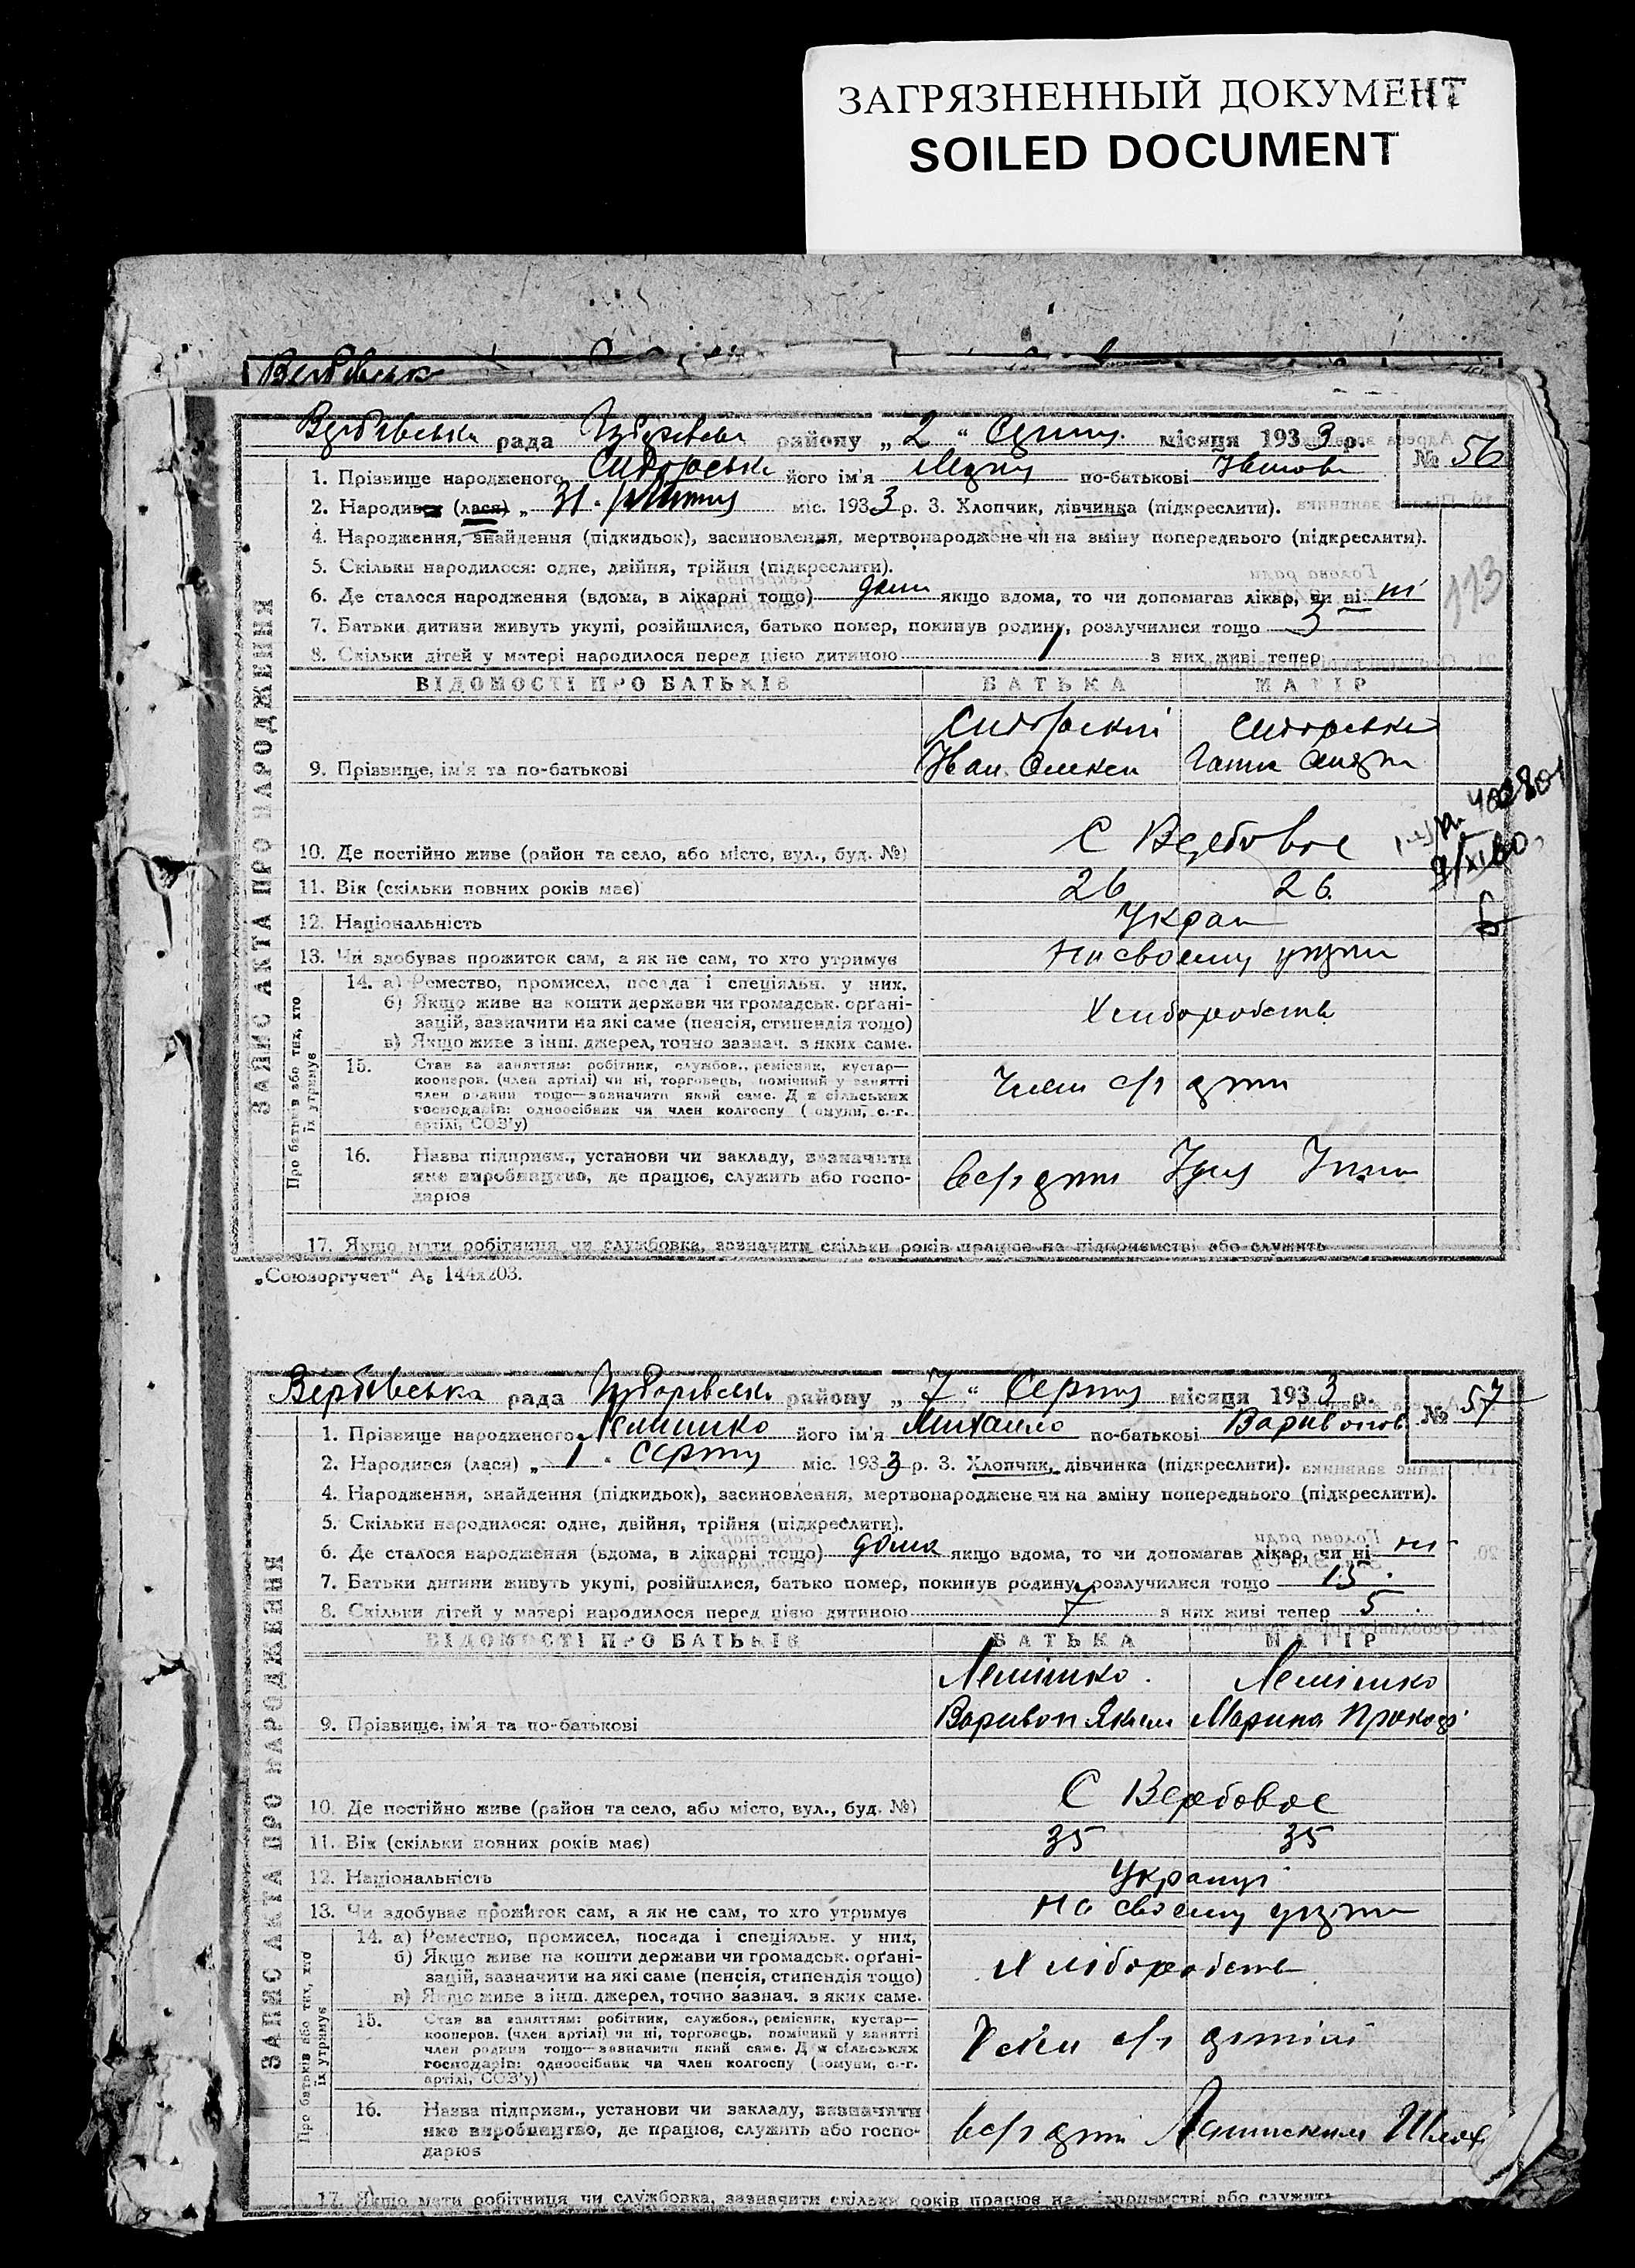 ЗАГРЯЗНЕННЫЙ ДОКУМЕНТ
SOILED DOCUMENT
Вербівськ
Вербівська рада району „ 2 “ Серпня місяця 1933 р.
№ 56
1. Прізвище народженого його ім'я по-батькові Іванова
2. Народився (лася) „ 31 міс. 1933 р. 3. Хлопчик, дівчинка (підкреслити).
4. Народження, знайдення (підкидьок), засиновлення, мертвонароджене чи на зміну попереднього (підкреслити).
5. Скільки народилося: одне, двійня, трійня (підкреслити).
6. Де сталося народження (вдома, в лікарні тощо) дома якщо вдома, то чи допомагав лікар, чи ні ні
113
7. Батьки дитини живуть укупі, розійшлися, батько помер, покинув родину, розлучилися тощо 3
8. Скільки дітей у матері народилося перед цією дитиною 1 з них живі тепер
ВІДОМОСТІ ПРО БАТЬКІВ БАТЬКА МАТІР
ЗАПИС АКТА ПРО НАРОДЖЕННЯ
Сидорский Сидорська
9. Прізвище, ім'я та по-батькові Іван Олексі Ганна
10. Де постійно живе (район та село, або місто, вул., буд. №) С Вербовое
11. Вік (скільки повних років має) 26 26
12. Національність Украї
13. Чи здобуває прожиток сам, а як не сам, то хто утримує На своєму утрим
Про батьків або тих, хто їх утримує
14. а) Ремество, промисел, посада і спеціяльн. у них.
б) Якщо живе на кошти держави чи громадськ. орґані-
зацій, зазначити на які саме (пенсія, стипендія тощо) Хлиборобств
в) Якщо живе з інш. джерел, точно зазнач. з яких саме.
15. Стан за заняттям: робітник, службов., ремісник, кустар—
кооперов. (член артілі) чи ні, торговець, помічний у занятті Член с/г арти
член родини тощо—зазначити який саме. Для сільських
господарів: одноосібник чи член колгоспу (комуни, с.-г.
артілі, СОЗ'у)
16. Назва підприєм., установи чи закладу, зазначити
яке виробництво, де працює, служить або госпо-
дарює
17. Якщо мати робітниця чи службовка, зазначити скільки років працює на підприємстві або служить
„Союзоргучет“ А₅ 144x203.
Вербівська рада району „ 7 “ Серпня місяця 1933 р.
№ 57
1. Прізвище народженого Лемишко його ім'я Михаило по-батькові Варивонов
2. Народився (лася) „ 1 . Серпня міс. 1933 р. 3. Хлопчик, дівчинка (підкреслити).
4. Народження, знайдення (підкидьок), засиновлення, мертвонароджене чи на зміну попереднього (підкреслити).
5. Скільки народилося: одне, двійня, трійня (підкреслити).
6. Де сталося народження (вдома, в лікарні тощо) дома якщо вдома, то чи допомагав лікар, чи ні ні
7. Батьки дитини живуть укупі, розійшлися, батько помер, покинув родину, розлучилися тощо 15
8. Скільки дітей у матері народилося перед цією дитиною 7 з них живі тепер 5
ВІДОМОСТІ ПРО БАТЬКІВ БАТЬКА МАТІР
ЗАПИС АКТА ПРО НАРОДЖЕННЯ
Лемішко Лемішко
9. Прізвище, ім'я та по-батькові Варивон Яким Марина Прокоф
10. Де постійно живе (район та село, або місто, вул., буд. №) С Вербовое
11. Вік (скільки повних років має) 35 35
12. Національність Українці
13. Чи здобуває прожиток сам, а як не сам, то хто утримує На своєму утрим
Про батьків або тих, хто їх утримує
14. а) Ремество, промисел, посада і спеціяльн. у них,
б) Якщо живе на кошти держави чи громадськ. орґані-
зацій, зазначити на які саме (пенсія, стипендія тощо) Хліборобств
в) Якщо живе з інш. джерел, точно зазнач. з яких саме.
15. Стан за заняттям: робітник, службов., ремісник, кустар—
кооперов. (член артілі) чи ні, торговець, помічний у занятті Член с/г артілі
член родини тощо—зазначити який саме. Для сільських
господарів: одноосібник чи член колгоспу (комуни, с.-г.
артілі, СОЗ'у)
16. Назва підприєм., установи чи закладу, зазначити
яке виробництво, де працює, служить або госпо- Шлях
дарює
17. Якщо мати робітниця чи службовка, зазначити скільки років працює на підприємстві або служить